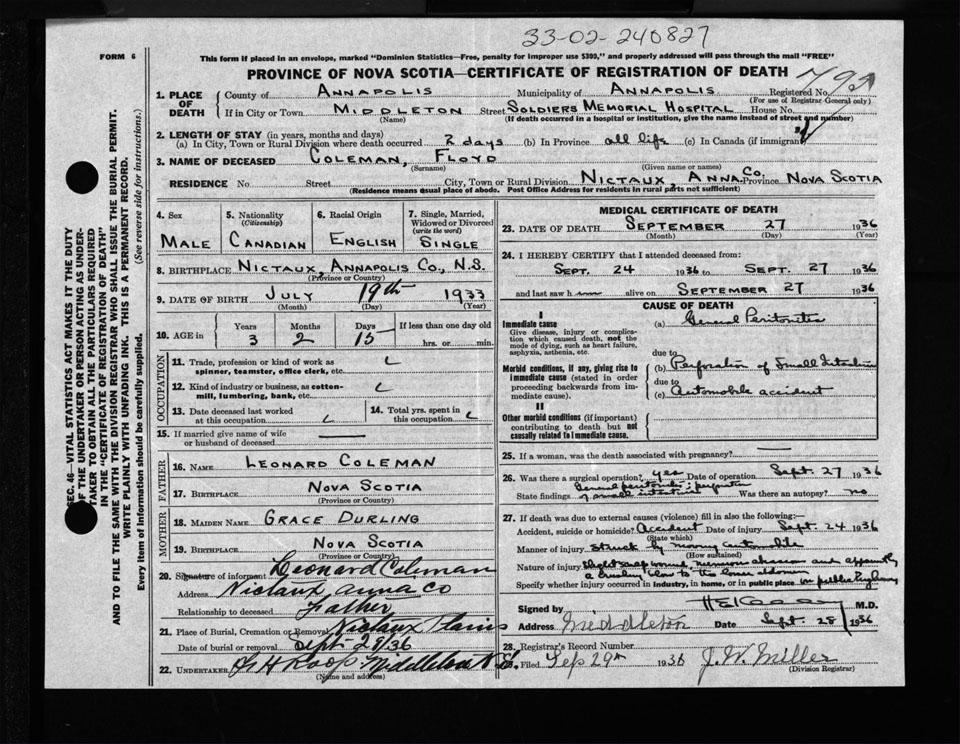 33-02-240827
FORM 6
This form if placed in an envelope, marked "Dominion Statistics—Free, penalty for improper use $300," and properly addressed will pass through the mail "FREE"
PROVINCE OF NOVA SCOTIA—CERTIFICATE OF REGISTRATION OF DEATH
1. PLACE OF DEATH County of ANNAPOLIS Municipality of ANNAPOLIS Registered No.
(For use of Registrar General only)
If in City or Town MIDDLETON Street SOLDIERS MEMORIAL HOSPITAL House No.
(Name) (If death occurred in a hospital or institution, give the name instead of street and number)
2. LENGTH OF STAY (in years, months and days)
(a) In City, Town or Rural Division where death occurred 2 days (b) In Province all life (c) In Canada (if immigrant)
3. NAME OF DECEASED COLEMAN, FLOYD
(Surname) (Given name or names)
RESIDENCE No. Street City, Town or Rural Division NICTAUX, ANNA. CO. Province NOVA SCOTIA
(Residence means usual place of abode. Post Office Address for residents in rural parts not sufficient)
4. Sex 5. Nationality (Citizenship) 6. Racial Origin 7. Single, Married, Widowed or Divorced (write the word)
MALE CANADIAN ENGLISH SINGLE
8. BIRTHPLACE NICTAUX, ANNAPOLIS CO., N.S.
(Province or Country)
9. DATE OF BIRTH JULY 19th 1933
(Month) (Day) (Year)
10. AGE in Years Months Days If less than one day old
3 2 15 hrs. or min.
OCCUPATION
11. Trade, profession or kind of work as spinner, teamster, office clerk, etc.
12. Kind of industry or business, as cotton-mill, lumbering, bank, etc.
13. Date deceased last worked at this occupation
14. Total yrs. spent in this occupation
15. If married give name of wife or husband of deceased
FATHER
16. NAME LEONARD COLEMAN
17. BIRTHPLACE NOVA SCOTIA
(Province or Country)
MOTHER
18. MAIDEN NAME GRACE DURLING
19. BIRTHPLACE NOVA SCOTIA
(Province or Country)
20. Signature of informant Leonard Coleman
Address Nictaux, anna Co
Relationship to deceased Father
21. Place of Burial, Cremation or Removal Nictaux Plains
Date of burial or removal Sept 29/36
22. UNDERTAKER Roop Middleton N.S.
(Name and address)
MEDICAL CERTIFICATE OF DEATH
23. DATE OF DEATH SEPTEMBER 27 1936
(Month) (Day) (Year)
24. I HEREBY CERTIFY that I attended deceased from:
SEPT. 24 1936 to SEPT. 27 1936
and last saw h im alive on SEPTEMBER 27 1936
CAUSE OF DEATH
I
Immediate cause (a) General Peritonitis
Give disease, injury or complication which caused death, not the mode of dying, such as heart failure, asphyxia, asthenia, etc.
due to
Morbid conditions, if any, giving rise to immediate cause (stated in order proceeding backwards from immediate cause).
(b) Perforation of Small Intestine
due to
(c) Automobile accident
II
Other morbid conditions (if important) contributing to death but not causally related to immediate cause.
25. If a woman, was the death associated with pregnancy?
26. Was there a surgical operation? yes Date of operation Sept. 27 1936
State findings General peritonitis; perforation of small intestine Was there an autopsy? no
27. If death was due to external causes (violence) fill in also the following:—
Accident, suicide or homicide? Accident Date of injury Sept. 24 1936
(State which)
Manner of injury Struck by moving automobile
(How sustained)
Nature of injury
Specify whether injury occurred in industry, in home, or in public place in public highway
Signed by M.D.
Address Middleton Date Sept. 28/1936
28. Registrar's Record Number
Filed Sep 29th 1936 J. W. Miller
(Division Registrar)
SEC. 46—VITAL STATISTICS ACT MAKES IT THE DUTY
OF THE UNDERTAKER OR PERSON ACTING AS UNDER-
TAKER TO OBTAIN ALL THE PARTICULARS REQUIRED
IN THE "CERTIFICATE OF REGISTRATION OF DEATH"
AND TO FILE THE SAME WITH THE DIVISION REGISTRAR WHO SHALL ISSUE THE BURIAL PERMIT.
WRITE PLAINLY WITH UNFADING INK. THIS IS A PERMANENT RECORD.
Every item of information should be carefully supplied. (See reverse side for instructions.)